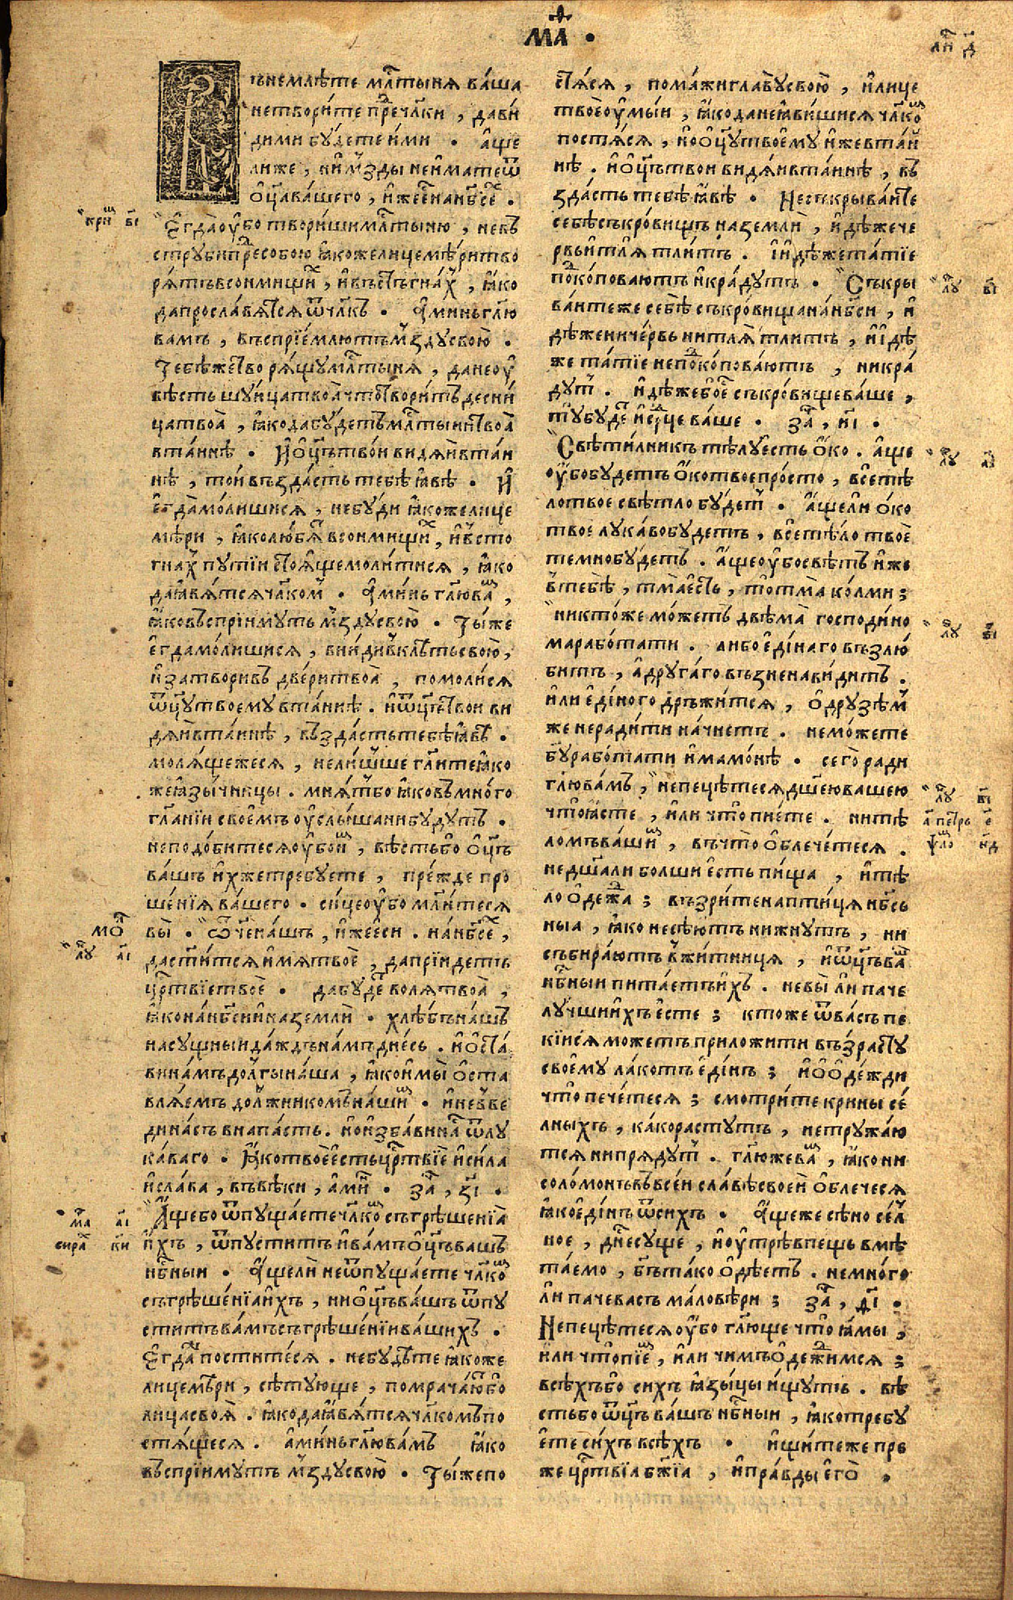 МА҃ .
ли҇ д҃
ъне́млѣте мл҇тыня ва́ша
нетвори́те пре҇чл҃ки , дави́
дими бу́дете и́ми . а́ще
лиже , ни мзды неи́мате ѿ
оц҃а ва́шего , и́же е҇ нанб҃се҇ .
Є҆гда̀ оу҆бо твори́ши мл҇тыню , невъ
струби́ пре҇собою я҆коже лицемѣ́ри тво
ря́тъ въсо́нмищи҇ , и҆ въ сто́гна҇х , я҆ко
да просла́вятся ѿ чл҃къ . а҆минь гл҃ю
вамъ , въспрїе́млютъ мзду свою̀ .
Тебѣ́ же творя́щу мл҇тыня , да не оу҆
вѣ́сть шу́йца твоя̀ что̀ твори́тъ десни́
ца твоя̀ , я҆ко да бу́детъ мл҇тыни твоя̀
вта́йнѣ . И҆ оц҃ъ тво́й ви́дяй вта́й
нѣ , то́й въздасть тебѣ̀ я҆вѣ . И҆
е҆гда̀ мо́лишися , небу́ди я҆коже лице
мѣ́ри , я҆ко лю́бя҇ въсо́нмищи҇ , и҆ въ сто
гна҇х пути́й стоя́ще моли́тися , я҆ко
да явя́тся чл҃ко҇м . а҆минь гл҃ю ва҇м ,
я҆ко въспрїи́мутъ мзду свою̀ . Ты́ же
е҆гда̀ мо́лишися , вни́ди въ клѣ́ть свою̀ ,
и҆ затвори́въ две́ри твоя̀ , помоли́ся
ѿц҃у твоему̀ вта́йнѣ . и҆ ѿц҃ъ тво́й ви
дяй вта́йнѣ , въздасть тебѣ̀ я҆вѣ .
моля́щежеся , нели́шше гл҃ите я҆ко
же я҆зы́чницы . мня́тбо я҆ко въ мно́го
гл҃а́нїи свое҆мъ оу҆слы́шани бу́дутъ .
неподо́битеся оу҆бо и҇м , вѣ́стьбо оц҃ъ
ва́шъ и҆хже тре́буете , пре́жде про
ше́нїя ва́шего . си́це оу҆бо мл҃и́теся
вы̀ . Ѿч҃е на́шъ , и҆же е҆си . на нб҃се҇ ,
да ст҃и́тся и҆мя твоѐ , да прїи́детъ
цр҇твїе твоѐ . да бу́де҇т во́ля твоя̀ ,
я҆ко на нб҃си и҆ на землѝ . хлѣ́бъ на́шъ
насу́щный да́ждь на́мъ дне́сь . и҆ оста́
ви на́мъ до́лгы на́ша , я҆ко и҆ мы̀ оста
вля́емъ должнико́мъ на́ши҇м . и҆ невъве
ди на́съ внапа́сть . но и҆зба́ви на҇с ѿ лу
ка́ваго . Я҆ко твоѐ е҆сть цр҇твїе и҆ си́ла
и҆ сла́ва , въ вѣ́ки , а҆ми҇н . за҇ , зі҃ .
А҆ще бо ѿпуща́ете чл҃ко҇м съгрѣше́нїа
и҆хъ , ѿпусти́тъ и҆ ва́мъ оц҃ъ ва́шъ
нб҇ный . а҆ще ли не ѿпуща́ете чл҃ко҇м
съгрѣше́нїа и҆хъ , ни оц҃ъ ва́шъ ѿпу
сти́тъ ва́мъ съгрѣше́нїи ва́шихъ .
Є҆гда҇ пости́теся . небудѣ́те я҆коже
лицемѣ́ри , сѣ́тующе , помрача́ю҇тбо
ли́ца своя̀ . я҆ко да явя́тся чл҃комъ по
стя́щеся . а҆минь гл҃ю ва́мъ я҆ко
въспрїи́мутъ мзду свою̀ . Ты́ же по
стя́ся , пома́жи главу̀ свою̀ , и҆ лице
твоѐ оу҆мы́й , я҆ко да не я҆ви́шися чл҃ко҇м
постя́ся , но оц҃у твоему̀ и҆же вта́й
нѣ . и҆ оц҃ъ твои ви́дяй вта́йнѣ , въ
здасть тебѣ̀ я҆вѣ . Не съкрыва́йте
себѣ̀ съкро́вищъ на землѝ , и҆дѣ́же че
рвь и҆ тля̀ тли́тъ . и҆ и҆дѣ́же та́тїе
по҇дкопо́ваютъ и҆ кра́дутъ . Съкры
ва́йте же себѣ̀ съкро́вища на нб҃си , и҆
дѣ́же ни че́рвь ни тля̀ тли́тъ , и҆ и҆дѣ́
же та́тїе не по҇дкопо́ваютъ , ни кра́
ду҇т . и҆дѣ́же бо е҇ съкро́вище ва́ше ,
ту̀ бу́де҇ и҆ ср҇це ва́ше . за҇ , иі҃ .
Свѣти́лникъ тѣ́лу е҆сть о҆ко . а҆ще
оу҆бо бу́детъ о҆ко твоѐ про́сто , всѐ тѣ́
ло твоѐ свѣ́тло бу́де҇т . а҆ще ли о҆ко
твоѐ лука́во бу́детъ , всѐ тѣ́ло твоѐ
темно бу́детъ . а҆ще оу҆бо свѣ́тъ и҆же
в тебѣ̀ , тма̀ е҆сть , то̀ тма̀ ко́лми ;
никто́же мо́жетъ двѣ́ма господи́но
ма рабо́тати . а҆нбо е҆ди́наго възлю́
битъ , а҆ друга́го възненави́дитъ .
и҆ли е҆ди́ного дръжи́тся , о҆ друзѣ́м
же неради́ти на́чнетъ . немо́жете
бг҃у рабо́тати и҆ мамо́нѣ . сего̀ ради
гл҃ю ва́мъ , непецѣ́теся дш҃ею ва́шею
что̀ я́сте , и҆ли что̀ пїе́те . ни тѣ́
ломъ ва́ши҇м , въ что̀ о҆блече́теся .
не дш҃а ли бо́лши е҆сть пи́ща , и҆ тѣ́
ло о҆де́жа ; възри́те на пти́ця нб҇сь
ныа , я҆ко не сѣ́ютъ ни жну́тъ , ни
събира́ютъ въ жи́тниця , и҆ ѿц҃ъ ва҇ш
нб҇ный пита́етъ и҆хъ . не вы́ ли па́че
лу́чши и҆хъ е҆сте ; кто́же ѿ ва́съ пе
кі́йся мо́жетъ приложи́ти възрасту
своему̀ ла́коть е҆ди́нъ ; и҆ о҆ о҆де́жди
что̀ пече́теся ; смотри́те кри́ны се́
лныхъ , ка́ко расту́тъ , не тружа́ю
тся ни пряду҇т . гл҃юже ва҇м , я҆ко ни
соломо́нъ въ все́й сла́вѣ свое́й о҆блече́ся
я҆ко е҆ди́нъ ѿ си́хъ . а҆ще же сѣ́но се́л
ное , дне́ суще , и҆ оу҆трѣ въ пе́щь вмѣ
та́емо , бг҃ъ та́ко о҆дѣ́етъ . не мно́го
ли па́че ва́съ малові́ри ; за҇ , ѳі҃ .
Непецѣ́теся оу҆бо гл҃юще что̀ я́мы ,
и҆ли что̀ пїе҇м , и҆ли чи́мъ о҆деж҇имся ;
всѣ́хъ бо си́хъ я҆зы́цы и҆щутъ . вѣ
стьбо ѿц҃ъ ва́шъ нб҇ный , я҆ко требу
е҆те си́хъ всѣ́хъ . и҆щи́те же пре
же цр҇твїа бж҃їа , и҆ пра́вды е҆го̀ ,